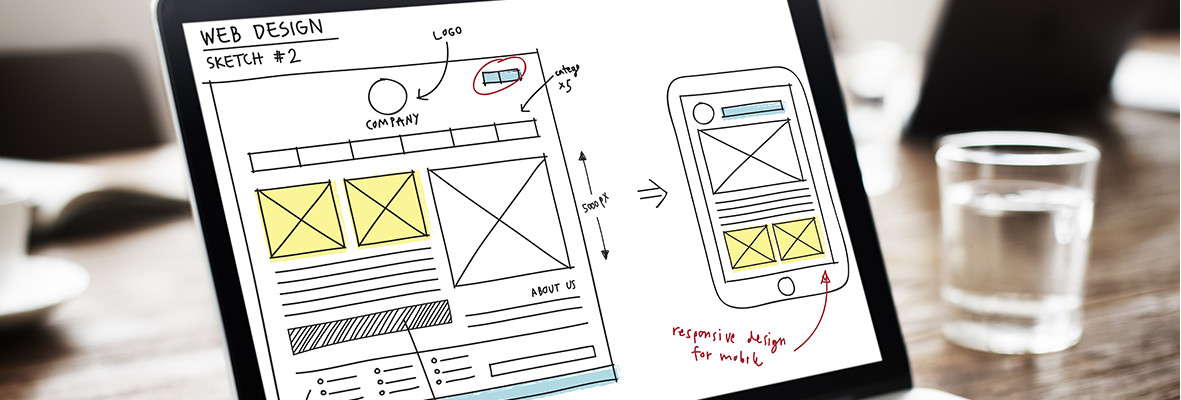 WEB DESIGN
SKETCH #2
LOGO
catego
x5
COMPANY
5000 PX
ABOUT US
responsive design
for mobile